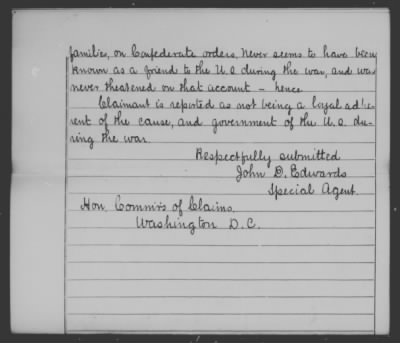 families, on Confederate orders, never seems to have been
known as a friend to the U.S. during the war, and was
never theatened on that account – hence
Claimant is reported as not being a loyal adhe-
rent of the cause, and government of the U.S. du-
ring the war.
Respectfully submitted
John D. Edwards
Special Agent.
Hon. Commrs of Claims.
Washington D.C.